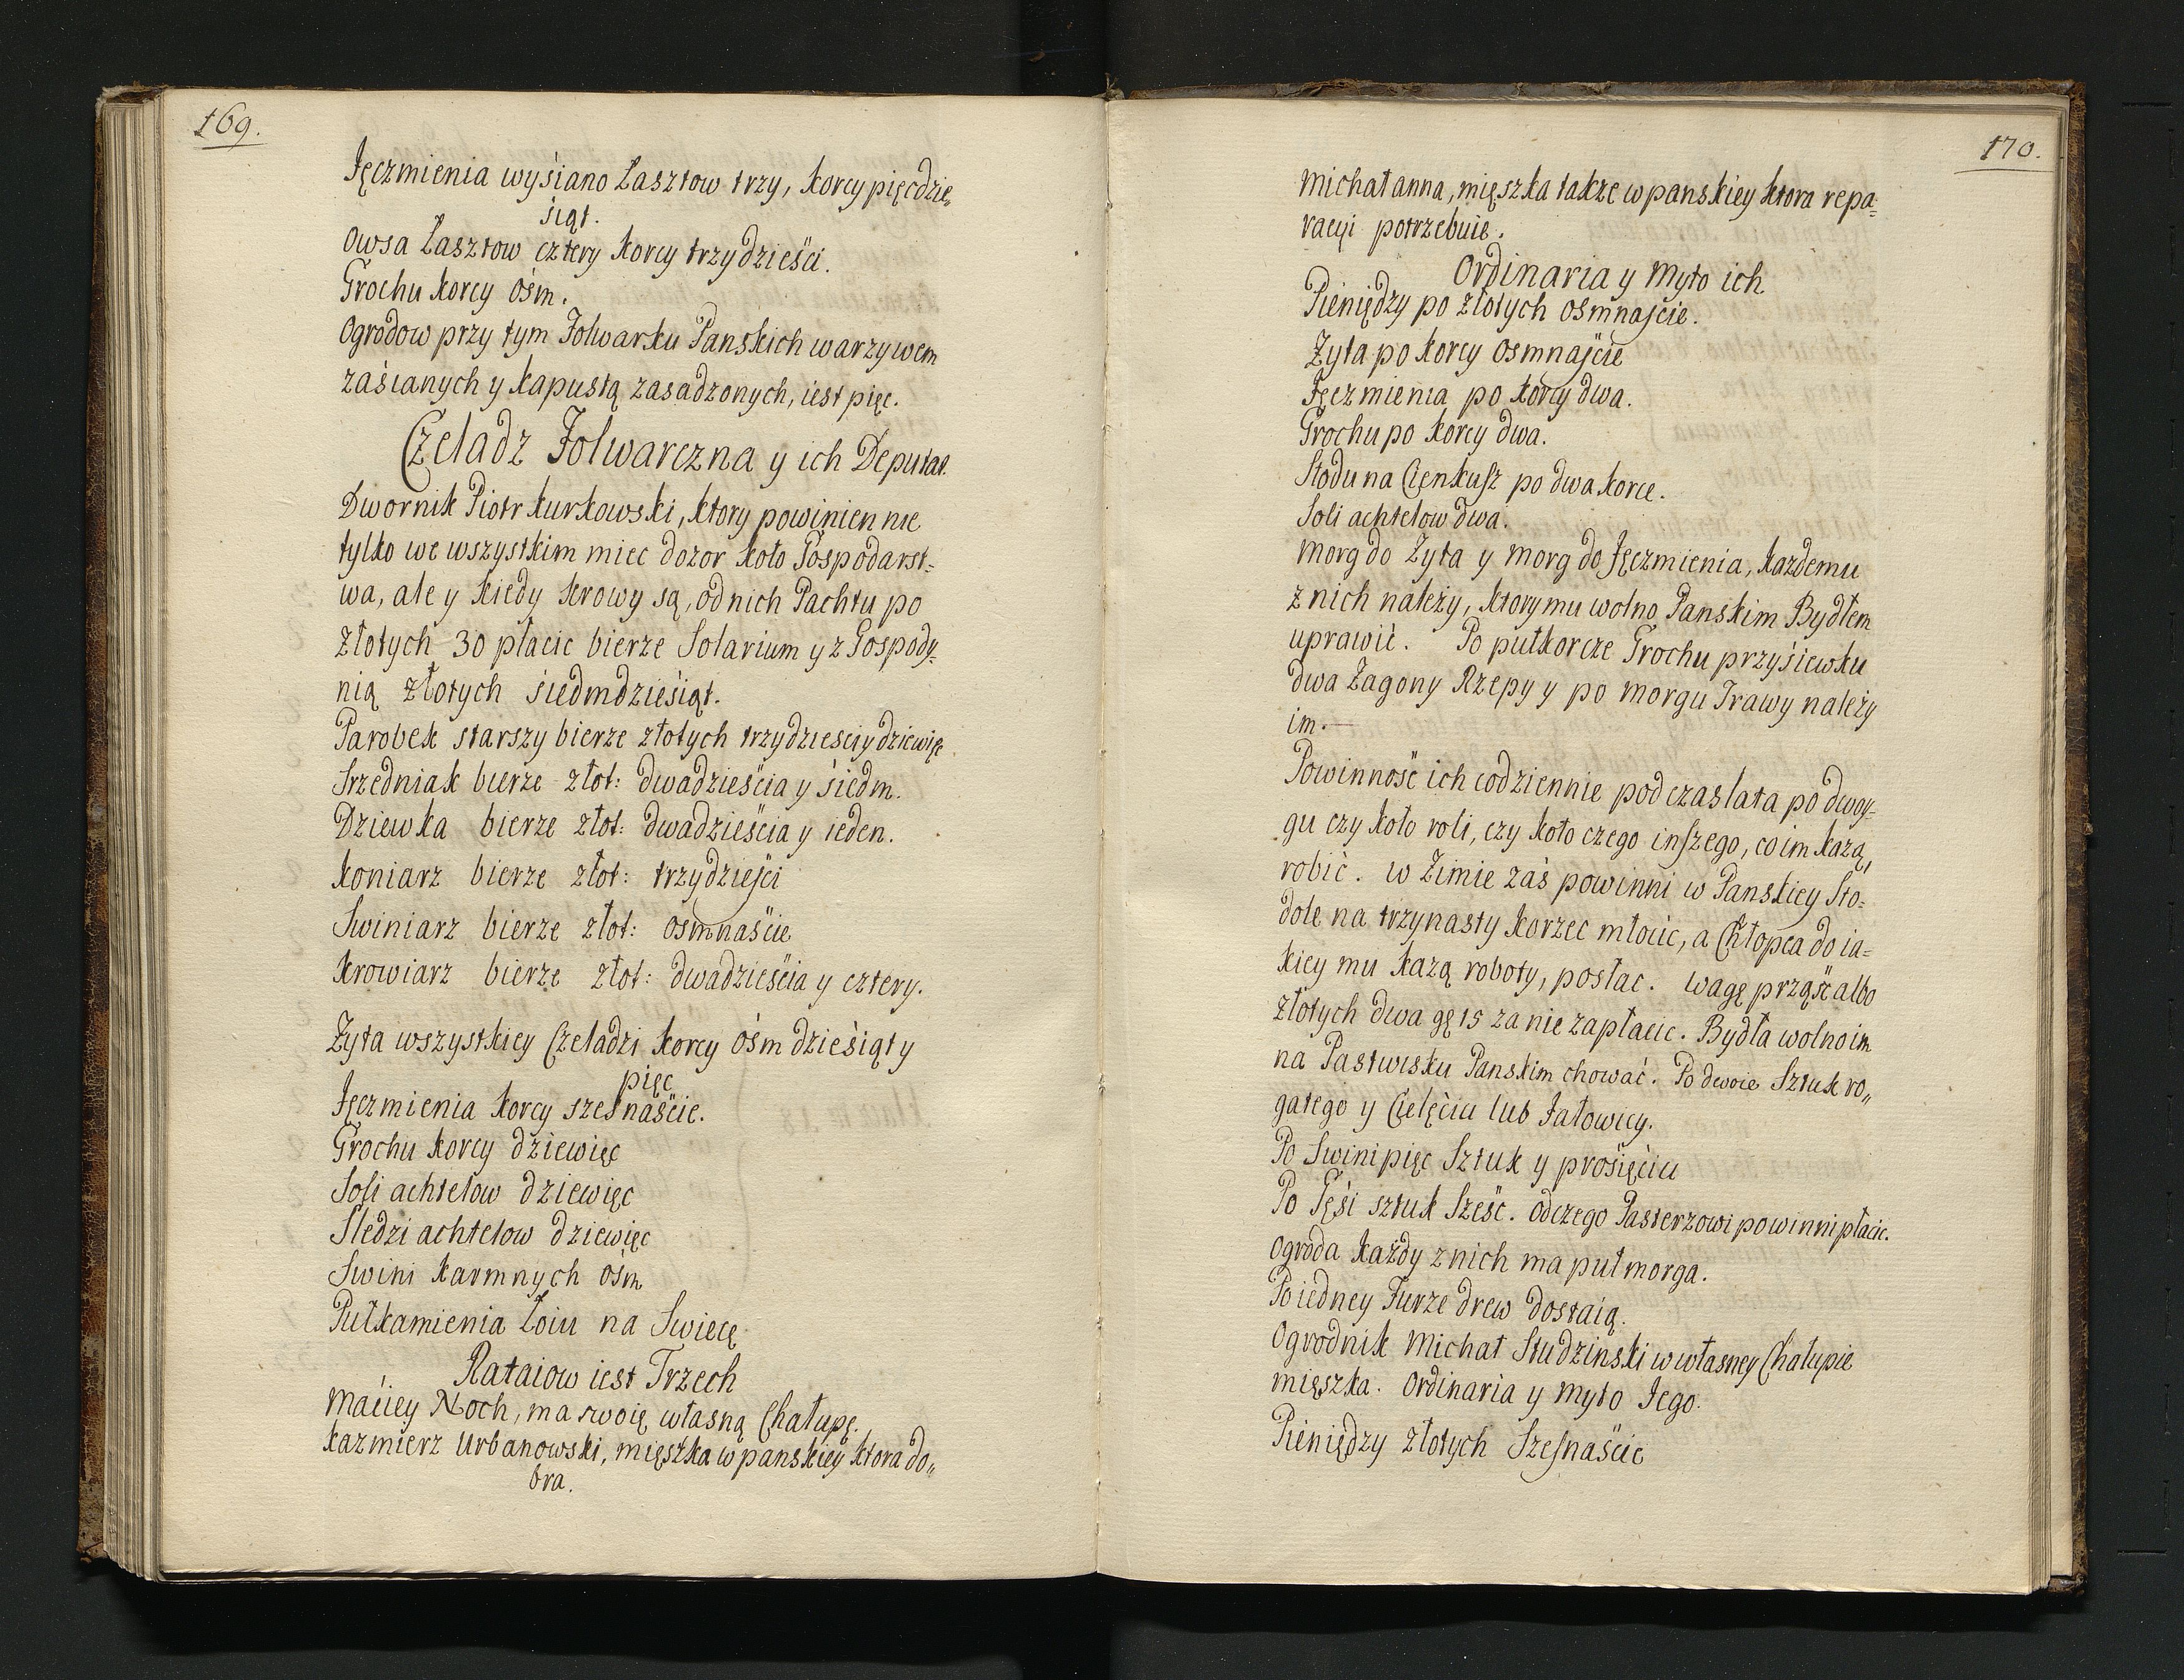 169.
Jęczmienia wyśiano Łasztow trzy, korcy pięcdzie„
śiąt.
Owsa Łasztow cztery korcy trzydzieśći.
Grochu korcy ośm.
Ogrodow przy tym Folwarku Panskich warzywem
zaśianych y kapustą zasadzonych, iest pięc.
Czeladz Folwarczna y ich Deputat.
Dwornik Piotr Kurkowski, ktory powinien nie
tylko we wszystkim miec dozor koło Gospodarst=
wa, ale y kiedy krowy są, od nich Pachtu po
złotych 30 płacic bierze Solarium y z Gospody=
nią złotych śiedmdzieśiąt.
Parobek starszy bierze złotych trzydziesci y dziewięc
Srzedniak bierze złot: dwadzieśćia y śiedm.
Dziewka bierze złot: dwadzieśćia y ieden.
Koniarz bierze złot: trzydzieści
Swiniarz bierze złot: osmnaśćie
Krowiarz bierze złot: dwadzieśćia y cztery.
Żyta wszystkiey Czeladzi korcy ośmdzieśiąt y
pięc
Jęczmienia korcy szesnaśćie.
Grochu korcy dziewięc
Soli achtelow dziewięc
Sledzi achtelow dziewięc
Swini karmnych ośm
Pułkamienia Łoiu na Swiecę
Rataiow iest Trzech
Maćiey Noch, ma swoię własną Chałupę.
Kazmierz Urbanowski, mięszka w panskiey ktora do„
bra.
170.
Michał anna, mięszka takze w panskiey ktora repa=
racyi potrzebuie.
Ordinaria y Myto ich
Pieniędzy po złotych osmnaście.
Żyta po korcy osmnaśćie
Jęczmienia po korcy dwa.
Grochu po korcy dwa.
Słodu na Cienkusz po dwa korce.
Soli achtelow dwa.
Morg do Żyta y morg do Jęczmienia, każdemu
z nich należy, ktory mu wolno Panskim Bydłem
uprawić. Po pułkorcze Grochu przyśiewku
dwa Zagony Rzepy y po morgu Trawy należy
im.—
Powinność ich codziennie podczas lata po dwoy=
gu czy koło roli, czy koło czego inszego, co im kazą,
robić. w Zimie zaś powinni w Panskiey Sto=
dole na trzynasty korzec młoćic, a Chłopca do ia=
kiey mu kazą roboty, posłac. Wagę prząść albo
złotych dwa gę 15 za nie zapłacic. Bydła wolno im
na Pastwisku Panskim chować. Po dwoie Sztuk ro„
gatego y Cielęćiu lub Jałowicy.
Po Swini pięc Sztuk y prośięćiu
Po Gęśi sztuk Sześć. odczego Pasterzowi powinni płacic.
Ogroda każdy z nich ma pułmorga.
Po iedney Furze drew dostaią.
Ogrodnik Michał Studzinski w własney Chałupie
mięszka. Ordinaria y Myto Jego.
Pieniędzy złotych Szesnaśćie